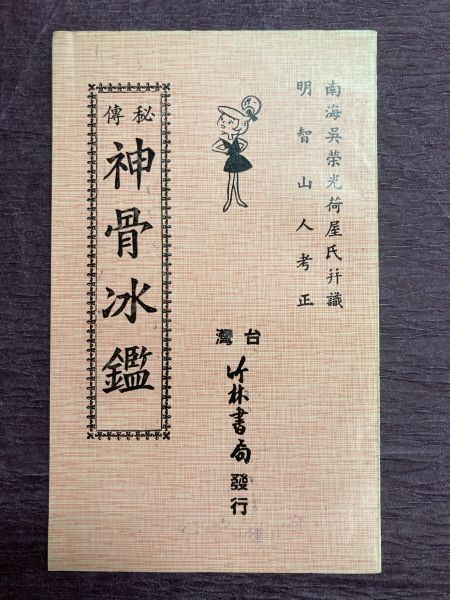 南海吳榮光荷屋氏幷識
明智山人考正
秘傳
神骨冰鑑
台灣
竹林書局發行